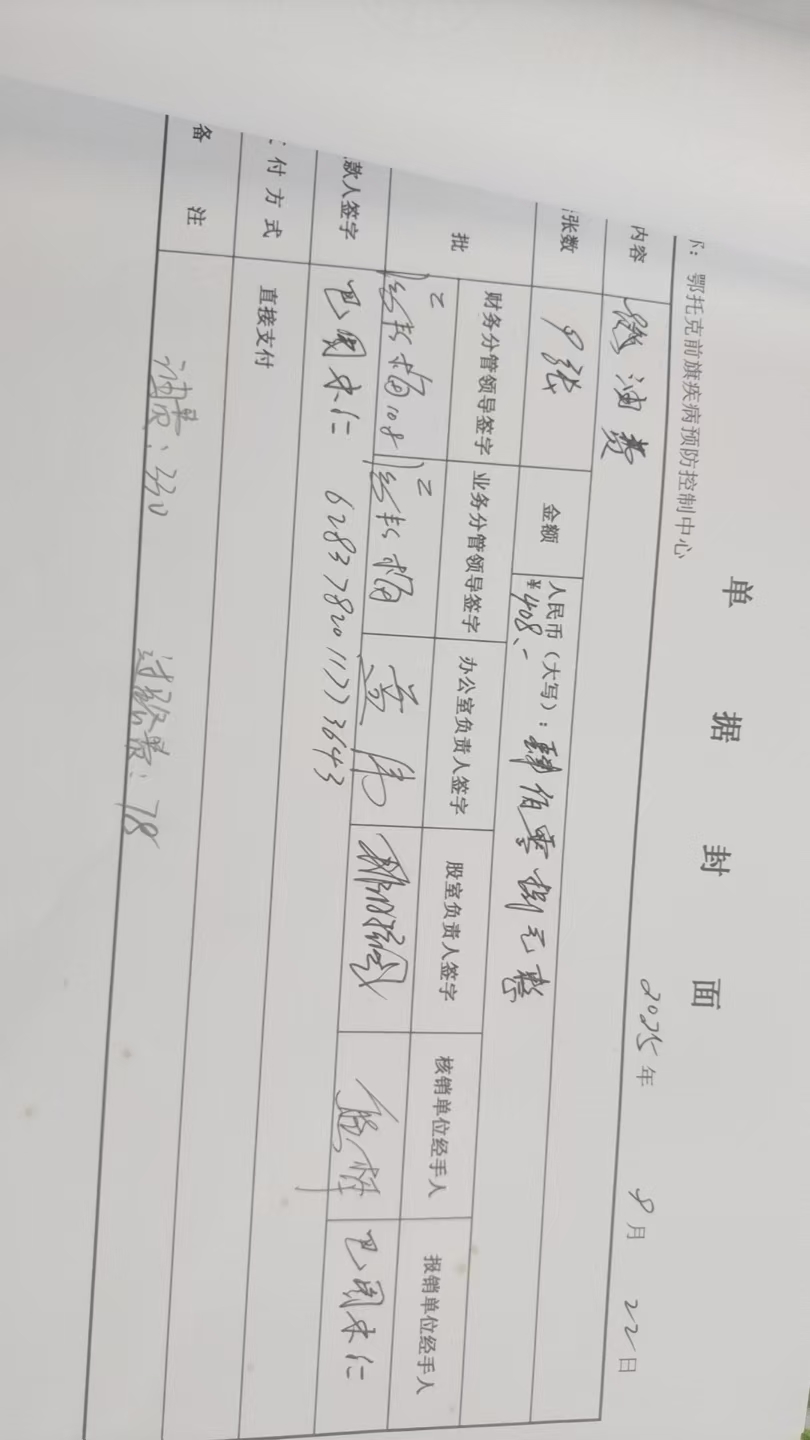 单据封面
鄂托克前旗疾病预防控制中心 2025年 9月 22日
内容 油费
张数 9张 金额 人民币（大写）：肆佰零捌元整
¥408.-
批 财务分管领导签字 业务分管领导签字 办公室负责人签字 股室负责人签字 核销单位经手人 报销单位经手人
巴图木仁
款人签字 巴图木仁 6283782011773643
付方式 直接支付
备注 油费：330 过路费：78